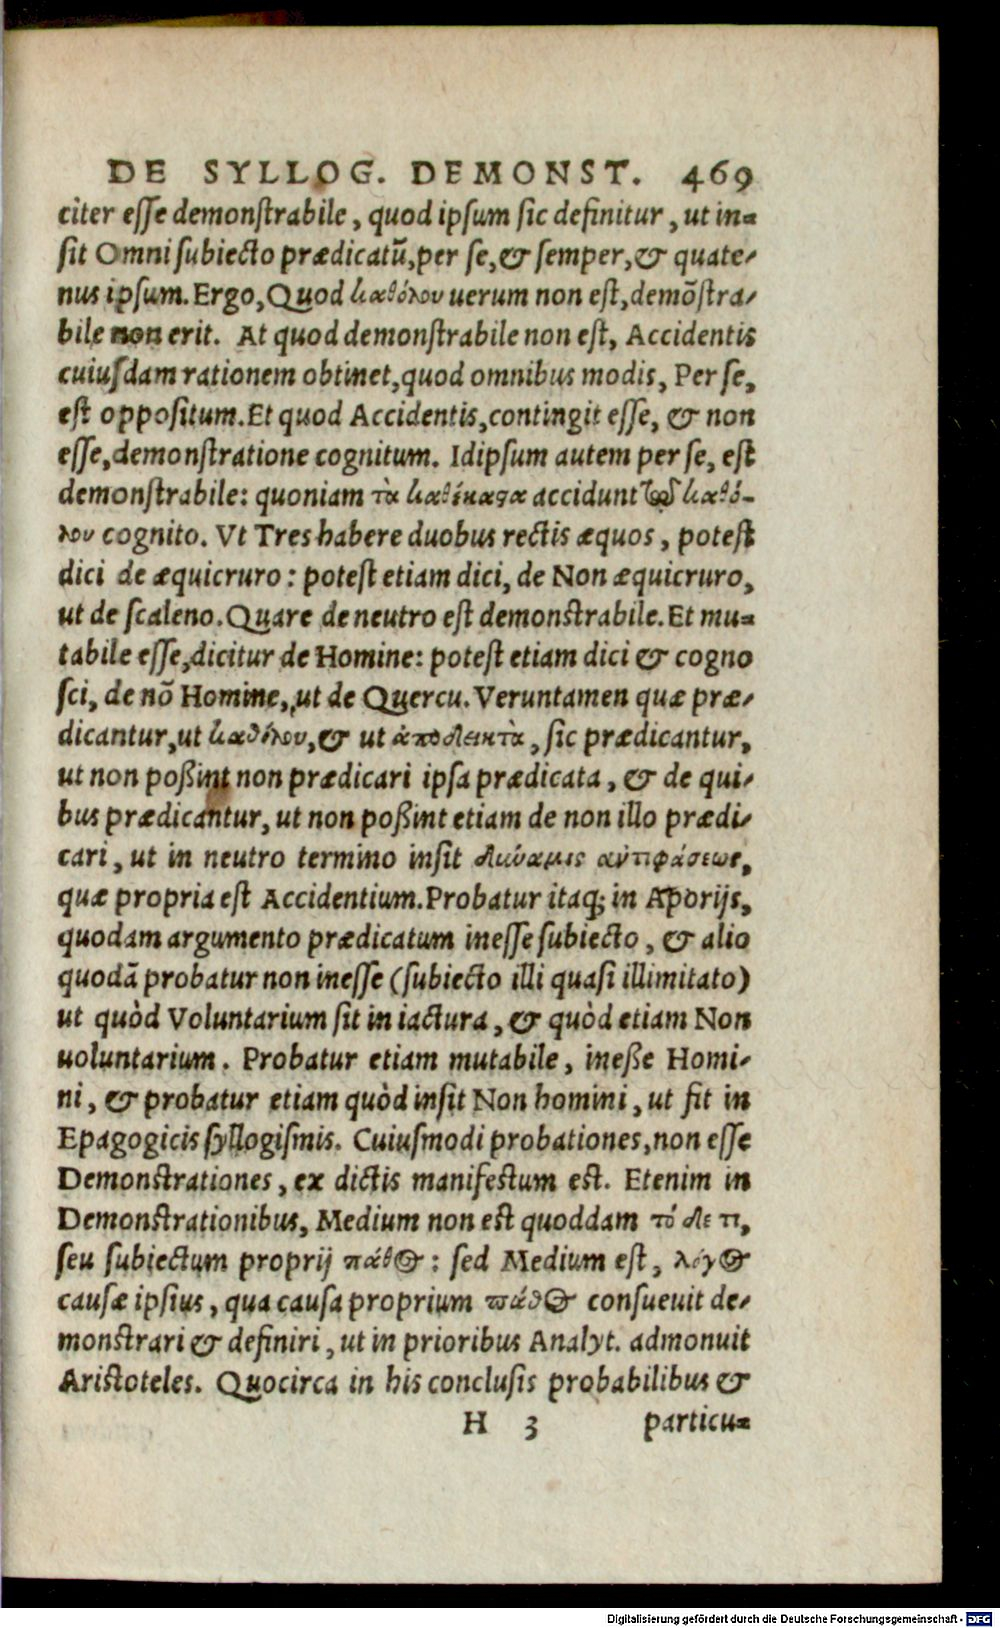 DE SYLLOG. DEMONST. 469
citer esse demonstrabile, quod ipsum sic definitur, ut in=
sit Omni subiecto prædicatū, per se, & semper, & quate-
nus ipsum. Ergo, Quod καθόλου uerum non est, demōstra-
bile non erit. At quod demonstrabile non est, Accidentis
cuiusdam rationem obtinet, quod omnibus modis, Per se,
est oppositum. Et quod Accidentis, contingit esse, & non
esse, demonstratione cognitum. Idipsum autem per se, est
demonstrabile: quoniam τὰ καθέκαστα accidunt τῷ καθό-
λου cognito. Vt Tres habere duobus rectis æquos, potest
dici de æquicruro: potest etiam dici, de Non æquicruro,
ut de scaleno. Quare de neutro est demonstrabile. Et mu=
tabile esse, dicitur de Homine: potest etiam dici & cogno
sci, de nō Homine, ut de Quercu. Veruntamen quæ præ-
dicantur, ut καθόλου, & ut ἀποδεικτὰ, sic prædicantur,
ut non poßint non prædicari ipsa prædicata, & de qui-
bus prædicantur, ut non poßint etiam de non illo prædi-
cari, ut in neutro termino insit δύναμις ἀντιφάσεως,
quæ propria est Accidentium. Probatur itaq; in Aporijs,
quodam argumento prædicatum inesse subiecto, & alio
quodā probatur non inesse (subiecto illi quasi illimitato)
ut quòd Voluntarium sit in iactura, & quòd etiam Non
uoluntarium. Probatur etiam mutabile, ineße Homi-
ni, & probatur etiam quòd insit Non homini, ut fit in
Epagogicis syllogismis. Cuiusmodi probationes, non esse
Demonstrationes, ex dictis manifestum est. Etenim in
Demonstrationibus, Medium non est quoddam τόδε τι,
seu subiectum proprij πάθος: sed Medium est, λόγος
causæ ipsius, qua causa proprium πάθος consueuit de-
monstrari & definiri, ut in prioribus Analyt. admonuit
Aristoteles. Quocirca in his conclusis probabilibus &
H 3 particu=
Digitalisierung gefördert durch die Deutsche Forschungsgemeinschaft - DFG